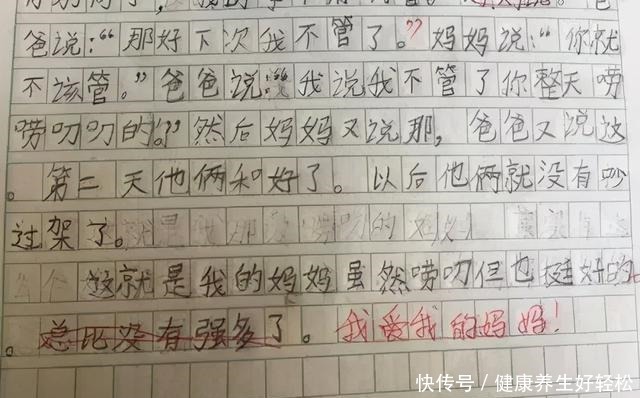 爸说：“那好下次我不管了。”妈妈说：“你就
不该管。”爸爸说：“我说我不管了你整天唠
唠叨叨的。”然后妈妈又说那，爸爸又说这
。第二天他俩和好了。以后他俩就没有吵
过架了。
这就是我的妈妈虽然唠叨但也挺好的
。总比没有强多了。我爱我的妈妈！
快传号／健康养生好轻松